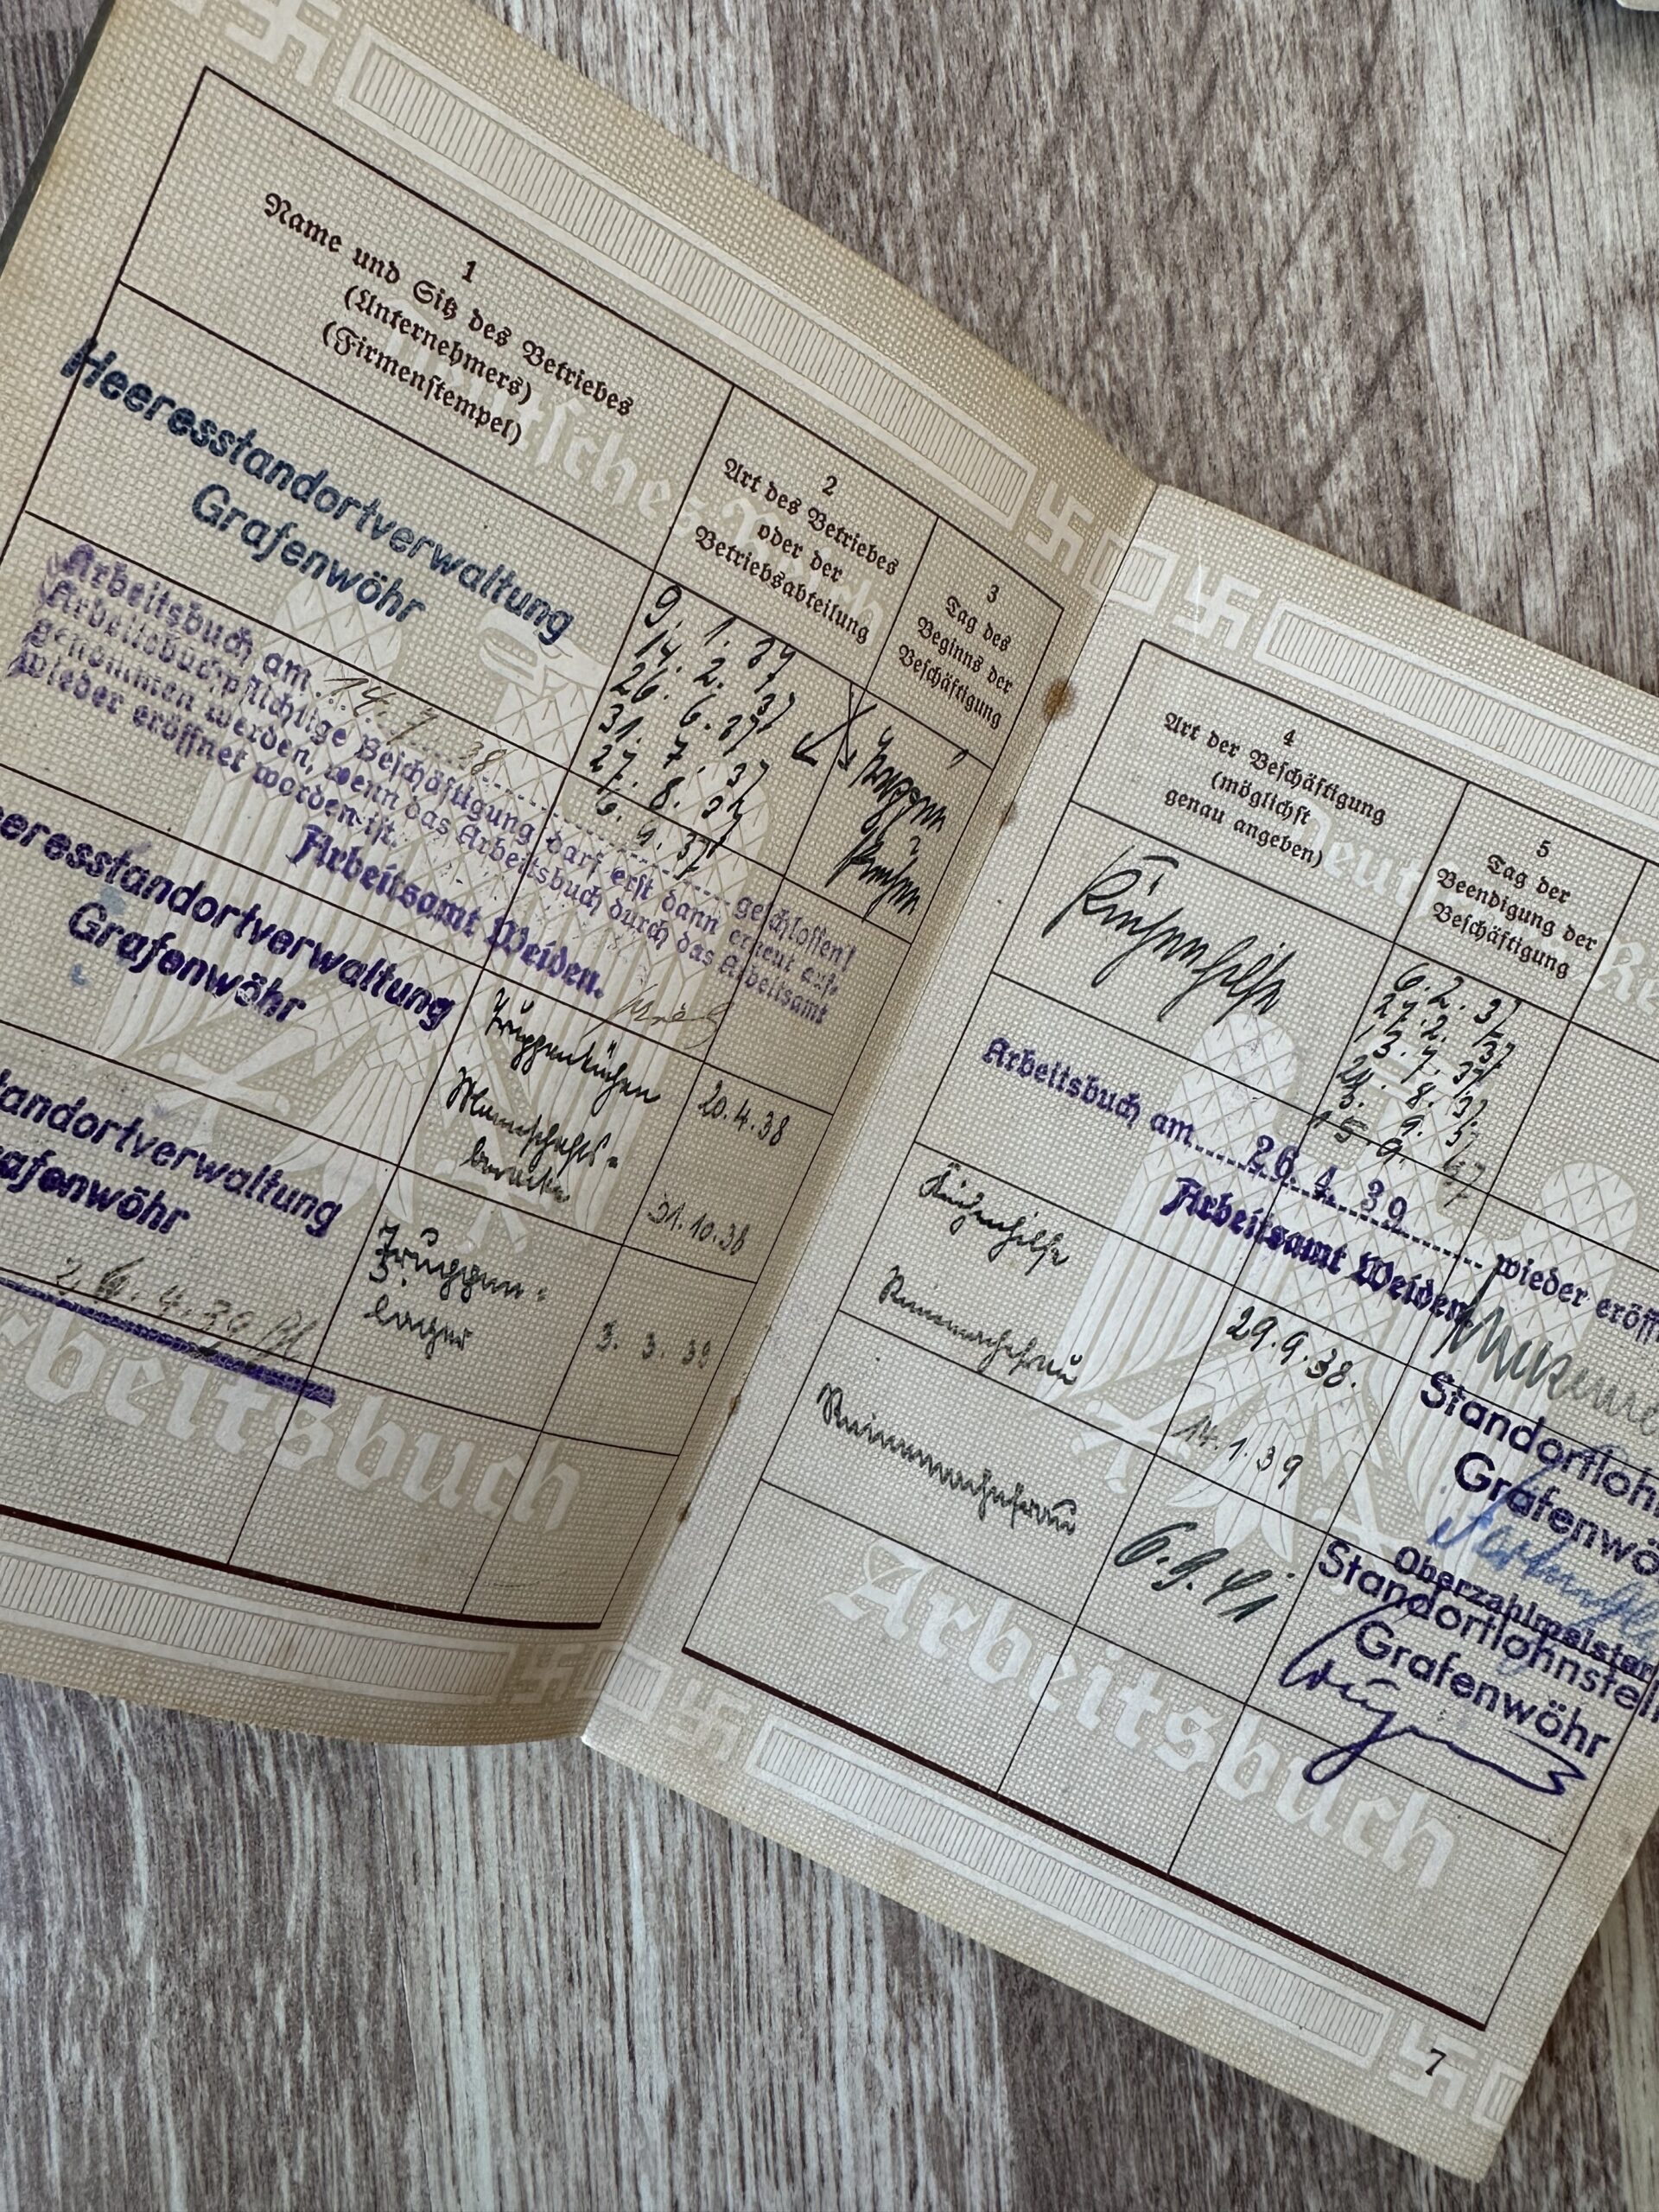 1
Name und Sitz des Betriebes
(Unternehmers)
(Firmenstempel)
2
Art des Betriebes
oder der
Betriebsabteilung
3
Tag des
Beginns der
Beschäftigung
Heeresstandortverwaltung
Grafenwöhr
9. 1. 37
14. 2. 37
26. 6. 37
31. 7. 37
27. 8. 37
6. 9. 37
Arbeitsbuch am 14. 9 38 geschlossen!
Arbeitsbuchpflichtige Beschäftigung darf erst dann erneut auf-
genommen werden, wenn das Arbeitsbuch durch das Arbeitsamt
wieder eröffnet worden ist.
Arbeitsamt Weiden.
eeresstandortverwaltung
Grafenwöhr
Truppenküchen
20.4.38
Mannschafts-
baracke
31.10.38
tandortverwaltung
afenwöhr
Truppen-
lager
3. 3. 39
26. 4. 39
Deutsches Reich
Arbeitsbuch
4
Art der Beschäftigung
(möglichst
genau angeben)
5
Tag der
Beendigung der
Beschäftigung
Küchenhilfe
6. 2. 37
27. 2. 37
13. 7. 37
8. 37
9. 37
15 9. 37
Arbeitsbuch am 26. 4. 39 wieder eröff
Arbeitsamt Weiden
Küchenhilfe
29.9.38.
Standortloh
Grafenwö
Reinmachefrau
14.1.39
Oberzahlmeister
Reinemachefrau
6.9.41
Standortlohnstell
Grafenwöhr
Arbeitsbuch
7